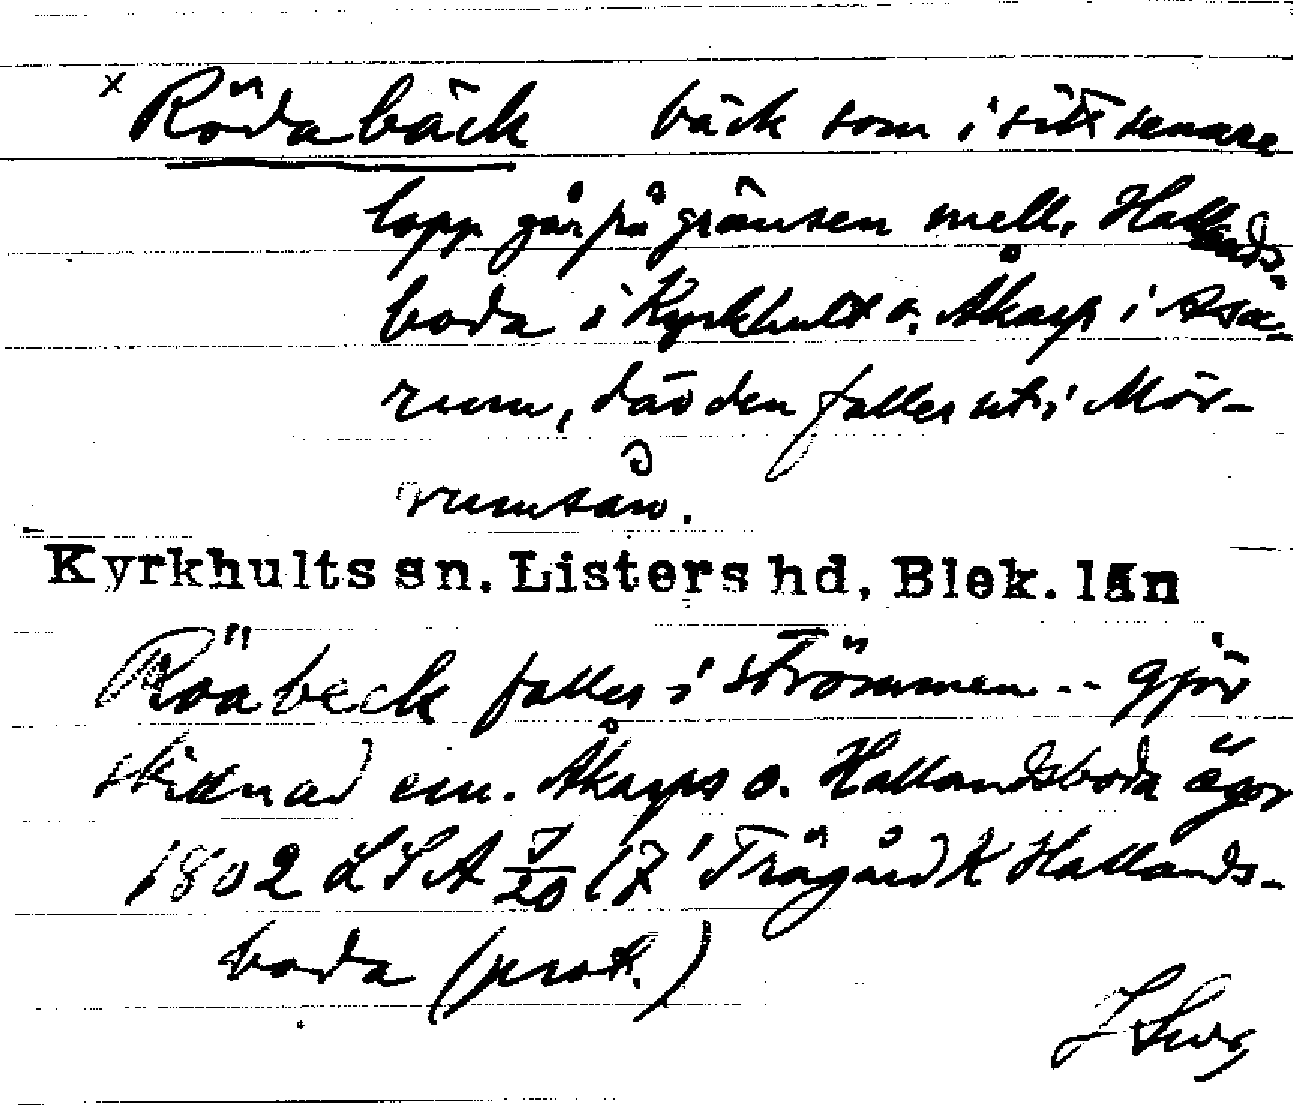 x Röda bäck bäck som i sitt senare
lopp går på gränsen mell. Hallands-
boda i Kyrkhult o. Åkarp i Asa-
rum, där den faller ut i Mör-
rumsån.
Kyrkhults sn. Listers hd, Blek. län
Röabeck faller i strömmen -- gjör
skilnad em. Åkarps o. Hallandsboda ägor
1802 LSA J/20 (7 Trägård K Hallands-
boda (prot.)